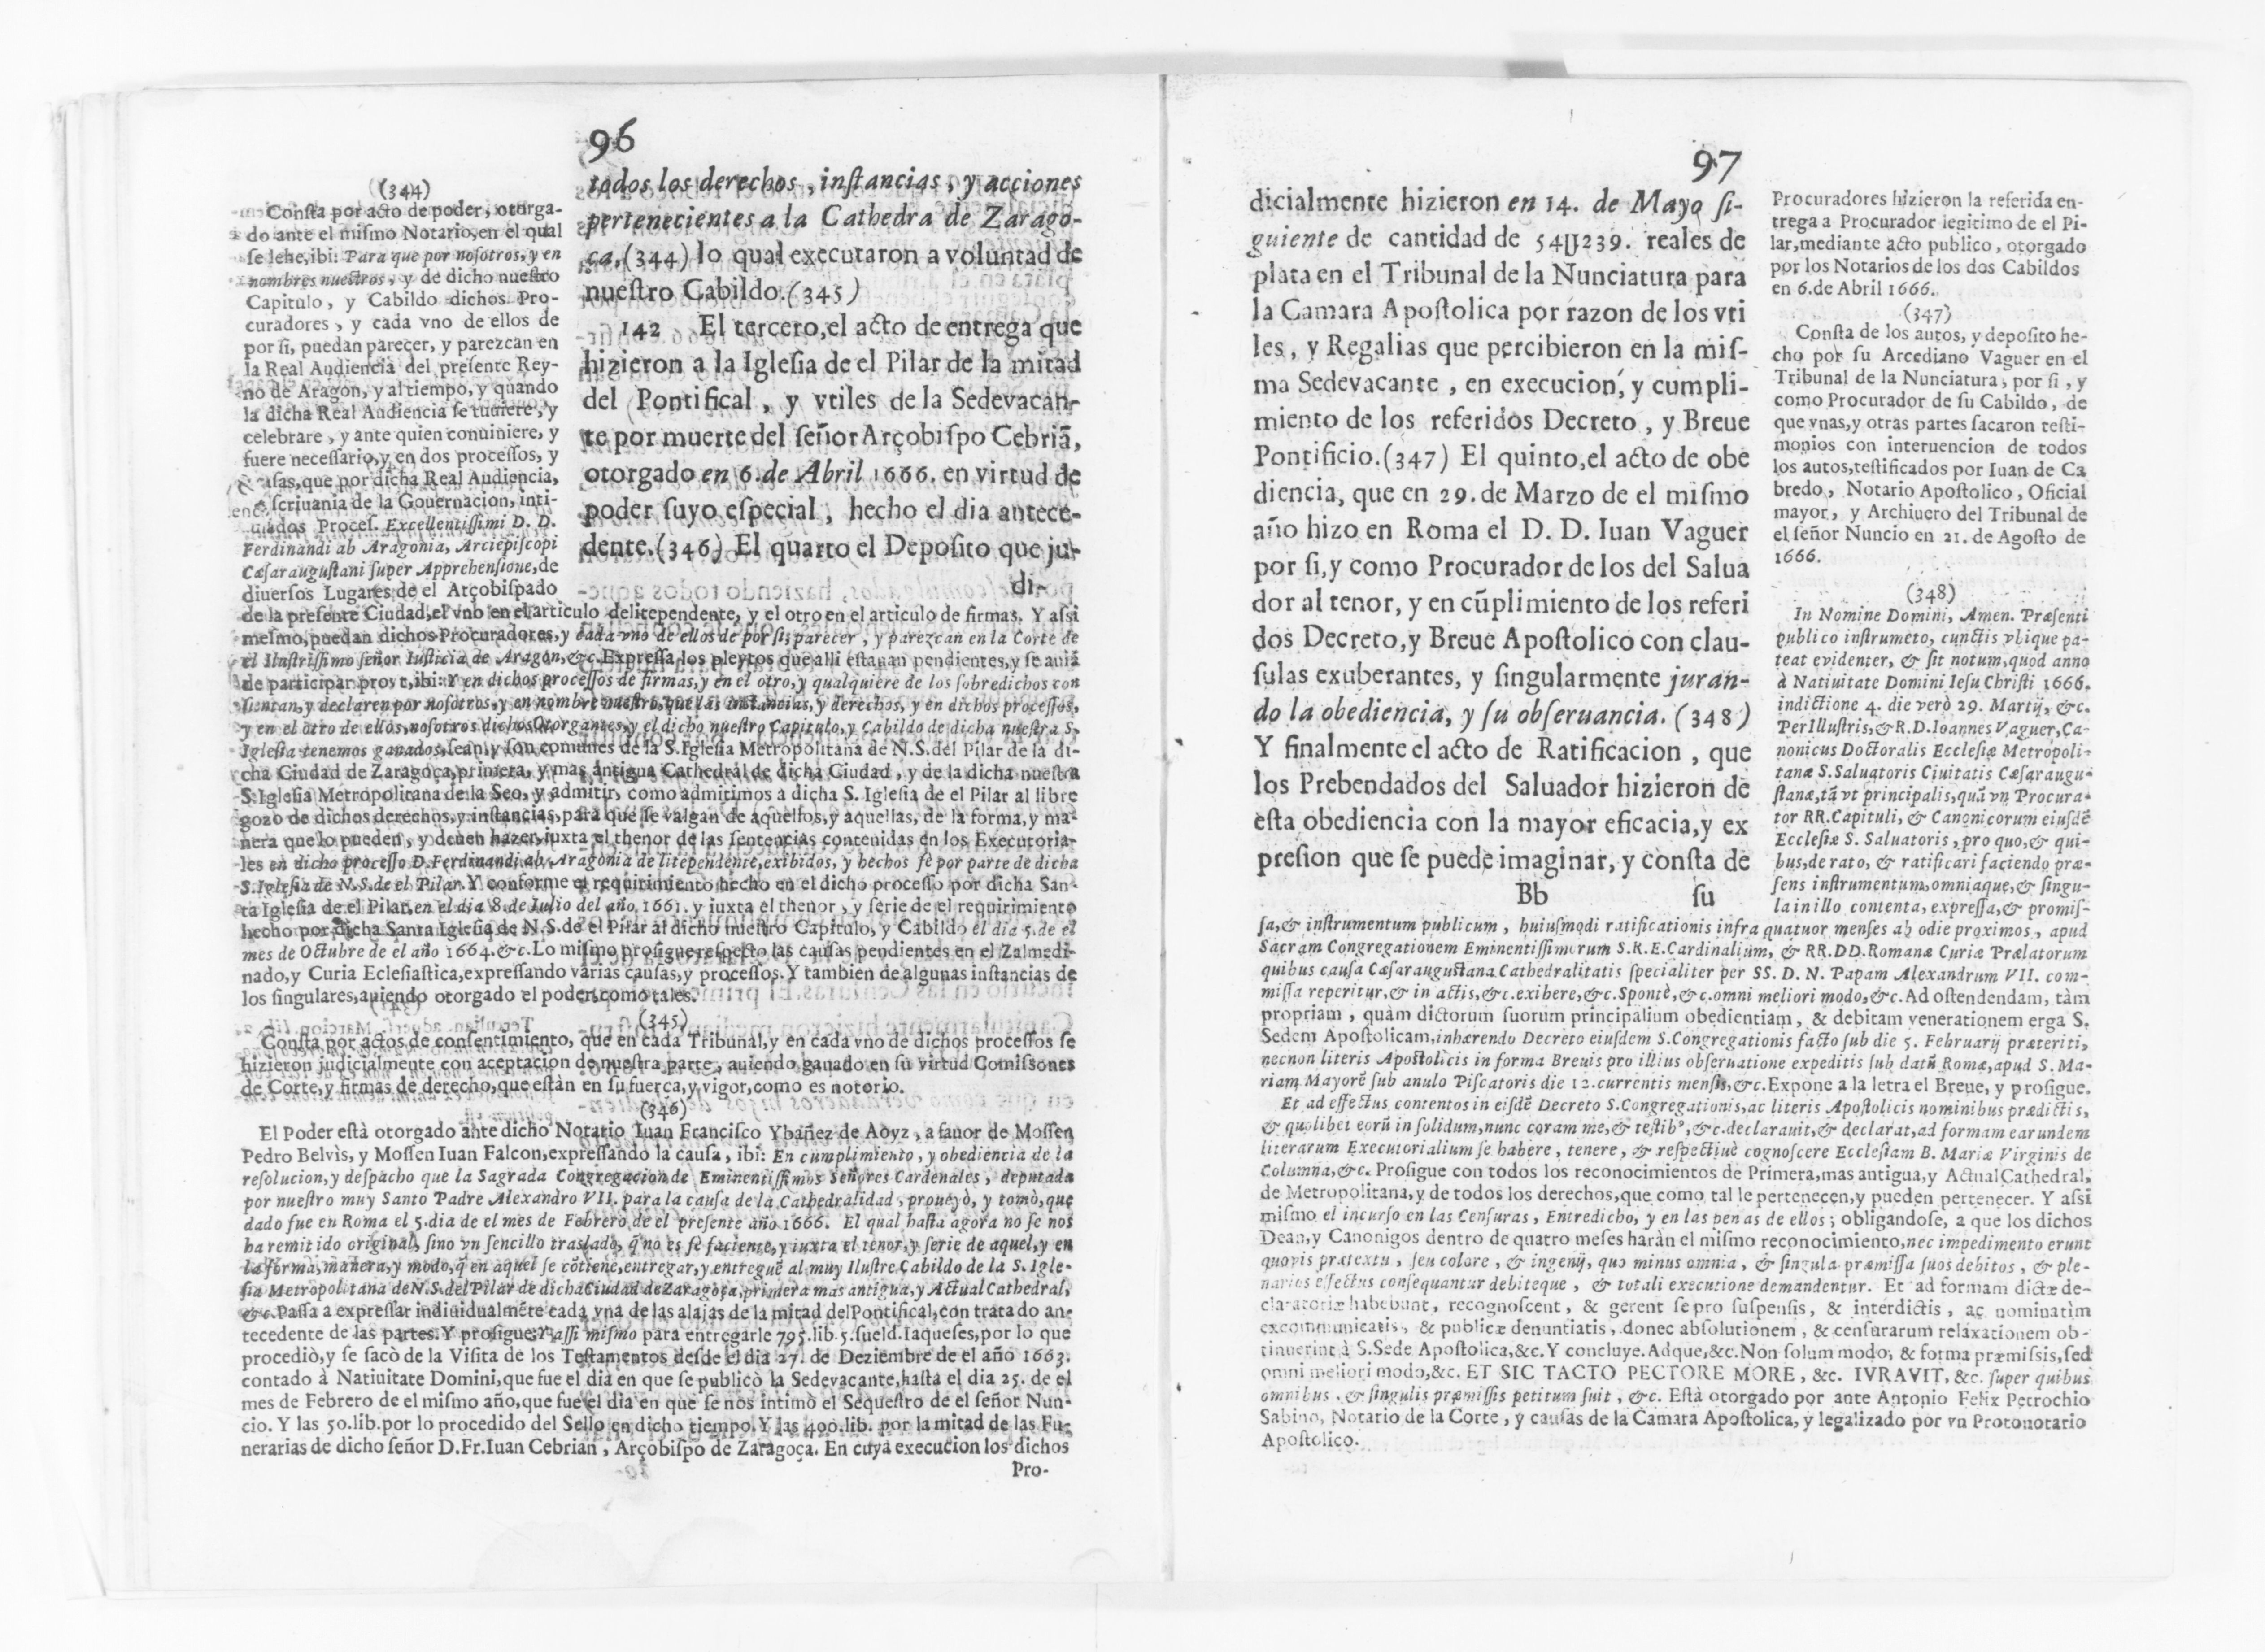 96
todos los derechos, instancias, y acciones
pertenecientes a la Cathedra de Zarago-
ça,(344) lo qual executaron a voluntad de
nuestro Cabildo.(345)
142 El tercero,el acto de entrega que
hizieron a la Iglesia de el Pilar de la mitad
del Pontifical, y vtiles de la Sedevacan-
te por muerte del señor Arçobispo Cebriã,
otorgado en 6.de Abril 1666. en virtud de
poder suyo especial, hecho el dia antece-
dente.(346) El quarto el Deposito que ju-
di-
(344)
Consta por acto de poder, otorga-
do ante el mismo Notario,en el qual
se lehe,ibi: Para que por nosotros,y en
nombres nuestros, y de dicho nuestro
Capitulo, y Cabildo dichos Pro-
curadores, y cada vno de ellos de
por si, puedan parecer, y parezcan en
la Real Audiencia del presente Rey-
no de Aragon, y al tiempo, y quando
la dicha Real Audiencia se tuuiere, y
celebrare, y ante quien conuiniere, y
fuere necessario,y en dos processos, y
sas,que por dicha Real Audiencia,
scriuania de la Gouernacion, inti-
Proces. Excellentissimi D. D.
Ferdinandi ab Aragonia, Arciepiscopi
Cæsaraugustani super Apprehensione,de
diuersos Lugares de el Arçobispado
de la presente Ciudad,el vno en el articulo delitependente, y el otro en el articulo de firmas. Y assi
mesmo,puedan dichos Procuradores,y cada vno de ellos de por si; parecer, y parezcan en la Corte de
el Ilustrissimo señor Iusticia de Aragon,&c.Expressa los pleytos que alli estauan pendientes,y se auiã
de participar ibi: Y en dichos processos de firmas,y en el otro,y qualquiere de los sobredichos con
sientan,y declaren por nosotros,y en nombre nuestro,que las instancias,y derechos, y en dichos processos,
y en el otro de ellos,nosotros dichos Otorgantes,y el dicho nuestro Capitulo,y Cabildo de dicha nuestra S.
Iglesia tenemos ganados,sean,y son comunes de la S.Iglesia Metropolitana de N.S.del Pilar de la di-
cha Ciudad de Zaragoça,primera, y mas antigua Cathedral de dicha Ciudad, y de la dicha nuestra
S.Iglesia Metropolitana de la Seo, y admitir, como admitimos a dicha S. Iglesia de el Pilar al libre
gozo de dichos derechos,y instancias,para que se valgan de aquellos,y aquellas, de la forma,y ma-
nera que lo pueden, y deuen hazer,iuxta el thenor de las sentencias contenidas en los Executoria-
les en dicho processo D.Ferdinandi ab Aragonia de litependente,exibidos, y hechos fè por parte de dicha
S.Iglesia de N.S.de el Pilar.Y conforme el requirimiento hecho en el dicho processo por dicha San-
ta Iglesia de el Pilar,en el dia 8.de Iulio del año 1661. y iuxta el thenor, y serie de el requirimiento
hecho por dicha Santa Iglesia de N.S.de el Pilar al dicho nuestro Capitulo, y Cabildo el dia 5.de el
mes de Octubre de el año 1664.&c.Lo mismo prosigue respecto las causas pendientes en el Zalmedi-
nado,y Curia Eclesiastica,expressando varias causas,y processos.Y tambien de algunas instancias de
los singulares,auiendo otorgado el poder,como tales.
(345)
Consta por actos de consentimiento, que en cada Tribunal,y en cada vno de dichos processos se
hizieron judicialmente con aceptacion de nuestra parte, auiendo ganado en su virtud Comissones
de Corte,y firmas de derecho,que estàn en su fuerça,y vigor,como es notorio.
(346)
El Poder està otorgado ante dicho Notario Iuan Francisco Ybañez de Aoyz, a fauor de Mossen
Pedro Belvis, y Mossen Iuan Falcon,expressando la causa, ibi: En cumplimiento, y obediencia de la
resolucion,y despacho que la Sagrada Congregacion de Eminentissimos Señores Cardenales, deputada
por nuestro muy Santo Padre Alexandro VII. para la causa de la Cathedralidad, proueyò, y tomò,que
dado fue en Roma el 5.dia de el mes de Febrero de el presente año 1666. El qual hasta agora no se nos
ha remitido original, sino vn sencillo traslado, q̃ no es fè faciente,y iuxta el tenor,y serie de aquel,y en
la forma,manera,y modo,q̃ en aquel se cõtiene,entregar,y entreguẽ al muy Ilustre Cabildo de la S. Igle-
sia Metropolitana de N.S.del Pilar de dicha Ciudad de Zaragoça,primera mas antigua,y Actual Cathedral,
&c.Passa a expressar indiuidualmẽte cada vna de las alajas de la mitad del Pontifical,con tratado an-
tecedente de las partes.Y prosigue:Y assi mismo para entregarle 795.lib.5.sueld.Iaqueses,por lo que
procediò,y se sacò de la Visita de los Testamentos desde el dia 27. de Deziembre de el año 1663.
contado à Natiuitate Domini,que fue el dia en que se publicò la Sedevacante,hasta el dia 25. de el
mes de Febrero de el mismo año,que fue el dia en que se nos intimò el Sequestro de el señor Nun-
cio. Y las 50.lib.por lo procedido del Sello en dicho tiempo.Y las 400.lib. por la mitad de las Fu-
nerarias de dicho señor D.Fr.Iuan Cebrian, Arçobispo de Zaragoça. En cuya execucion los dichos
Pro-
97
dicialmente hizieron en 14. de Mayo si-
guiente de cantidad de 54U239. reales de
plata en el Tribunal de la Nunciatura para
la Camara Apostolica por razon de los vti
les, y Regalias que percibieron en la mis-
ma Sedevacante, en execucion, y cumpli-
miento de los referidos Decreto, y Breue
Pontificio.(347) El quinto,el acto de obe
diencia, que en 29.de Marzo de el mismo
año hizo en Roma el D. D. Iuan Vaguer
por si,y como Procurador de los del Salua
dor al tenor, y en cũplimiento de los referi
dos Decreto,y Breue Apostolico con clau-
sulas exuberantes, y singularmente juran-
do la obediencia, y su obseruancia. (348)
Y finalmente el acto de Ratificacion, que
los Prebendados del Saluador hizieron de
esta obediencia con la mayor eficacia,y ex
presion que se puede imaginar, y consta de
Bb su
Procuradores hizieron la referida en-
trega a Procurador legitimo de el Pi-
lar,mediante acto publico, otorgado
por los Notarios de los dos Cabildos
en 6.de Abril 1666.
(347)
Consta de los autos, y deposito he-
cho por su Arcediano Vaguer en el
Tribunal de la Nunciatura, por si, y
como Procurador de su Cabildo, de
que vnas,y otras partes sacaron testi-
monios con interuencion de todos
los autos,testificados por Iuan de Ca
bredo, Notario Apostolico, Oficial
mayor, y Archiuero del Tribunal de
el señor Nuncio en 21. de Agosto de
1666.
(348)
In Nomine Domini, Amen. Præsenti
publico instrumẽto, cunctis vlique pa-
teat evidenter, & sit notum,quod anno
à Natiuitate Domini Iesu Christi 1666.
indictione 4. die verò 29. Martij, &c.
Per Illustris,& R.D.Ioannes Vaguer,Ca-
nonicus Doctoralis Ecclesiæ Metropoli-
tanæ S.Saluatoris Ciuitatis Cæsaraugu-
stanæ,tã vt principalis,quã vn Procura-
tor RR.Capituli, & Canonicorum eiusdẽ
Ecclesiæ S. Saluatoris, pro quo,& qui-
bus,de rato, & ratificari faciendo præ-
sens instrumentum,omniaque,& singu-
la in illo contenta, expressa,& promis-
sa,& instrumentum publicum, huiusmodi ratificationis infra quatuor menses ab odie proximos, apud
Sacram Congregationem Eminentissimorum S.R.E.Cardinalium, & RR.DD.Romanæ Curiæ Prælatorum
quibus causa Cæsaraugustana Cathedralitatis specialiter per SS. D. N. Papam Alexandrum VII. com-
missa reperitur,& in actis,&c.exibere,&c.Spontè,&c.omni meliori modo,&c.Ad ostendendam, tàm
propriam, quàm dictorum suorum principalium obedientiam, & debitam venerationem erga S.
Sedem Apostolicam,inhærendo Decreto eiusdem S.Congregationis facto sub die 5. Februarij præteriti,
necnon literis Apostolicis in forma Breuis pro illius obseruatione expeditis sub datũ Romæ,apud S. Ma-
riam Mayorẽ sub anulo Piscatoris die 12.currentis mensis,&c.Expone a la letra el Breue, y prosigue.
Et ad effectus contentos in eisdẽ Decreto S.Congregationis,ac literis Apostolicis nominibus prædictis,
& quolibet eorũ in solidum,nunc coram me,& testibꝰ,&c.declarauit,& declarat,ad formam earundem
literarum Executorialium se habere, tenere, & respectiuè cognoscere Ecclesiam B. Mariæ Virginis de
Columna,&c. Prosigue con todos los reconocimientos de Primera,mas antigua,y Actual Cathedral,
de Metropolitana,y de todos los derechos,que como tal le pertenecen,y pueden pertenecer. Y assi
mismo el incurso en las Censuras, Entredicho, y en las penas de ellos; obligandose, a que los dichos
Dean,y Canonigos dentro de quatro meses haràn el mismo reconocimiento,nec impedimento erunt
quovis prætextu, seu colore, & ingenij, quo minus omnia, & singula præmissa suos debitos, & ple-
narios effectus consequantur debiteque, & totali executione demandentur. Et ad formam dictæ de-
claratoriæ habebunt, recognoscent, & gerent se pro suspensis, & interdictis, ac nominatìm
excommunicatis, & publicæ denuntiatis, donec absolutionem, & censurarum relaxationem ob-
tinuerint à S.Sede Apostolica,&c.Y concluye.Adque,&c.Non solum modo, & forma præmissis,sed
omni meliori modo,&c. ET SIC TACTO PECTORE MORE, &c. IVRAVIT, &c. super quibus
omnibus, & singulis præmissis petitum fuit, &c. Està otorgado por ante Antonio Felix Petrochio
Sabino, Notario de la Corte, y causas de la Camara Apostolica, y legalizado por vn Protonotario
Apostolico.